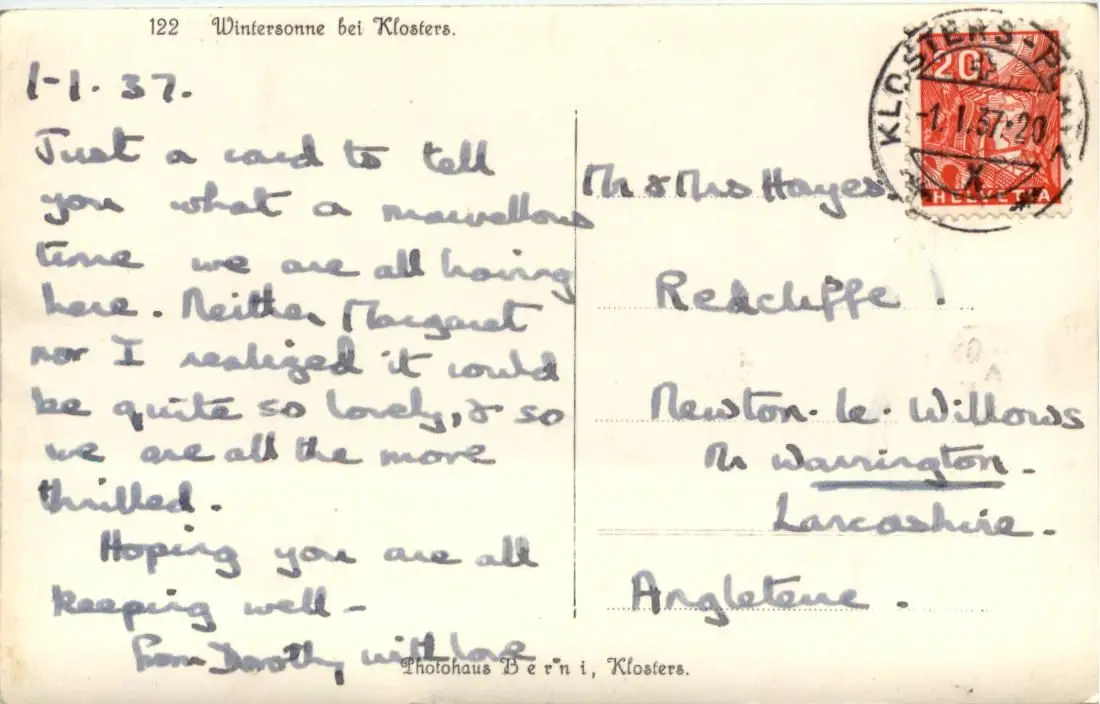 122 Wintersonne bei Klosters.
1-1. 37.
Just a card to tell
you what a marvellous
time we are all having
here. Neither Margaret
nor I realized it would
be quite so lovely, & so
we are all the more
thrilled.
Hoping you are all
keeping well -
from Dorothy with love
Photohaus Berni, Klosters.
KLOSTERS-PLATZ
-1. I. 37.-20
X
20
HELVETIA
Mr & Mrs Hayes
Redcliffe .
Newton-le-Willows
Nr Warrington.
Lancashire.
Angleterre .